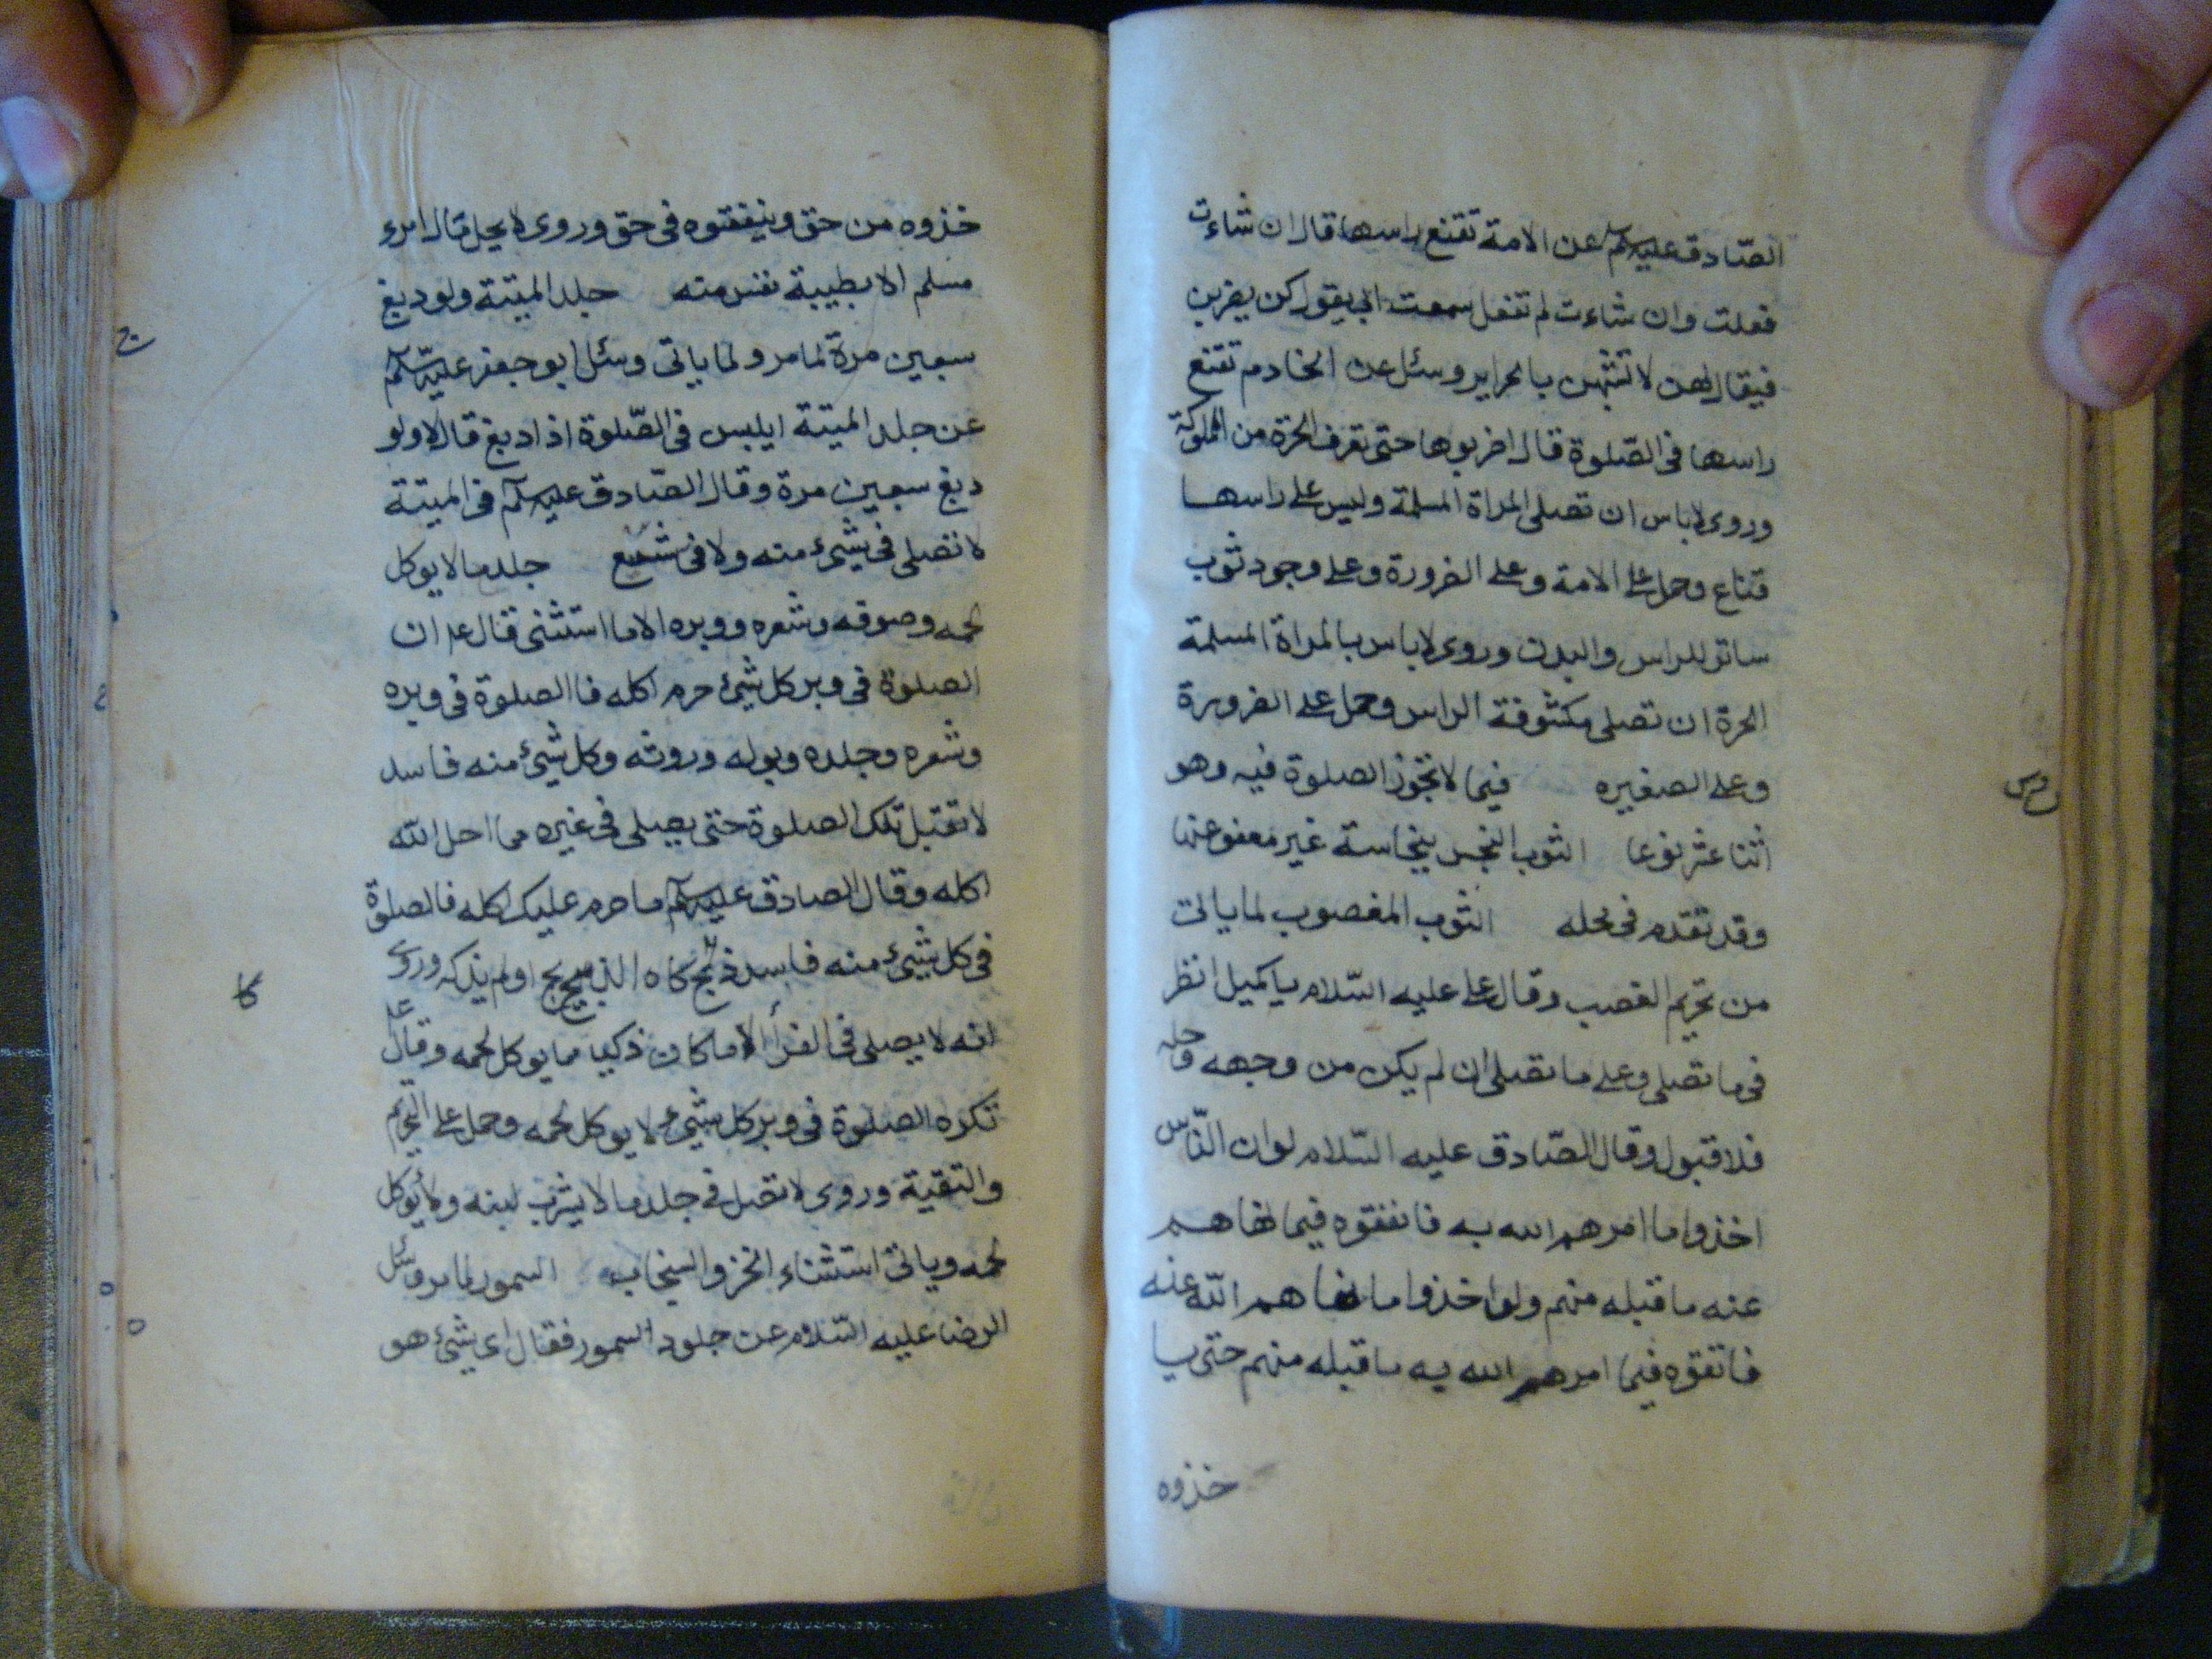 الصّادق عليه السلم عن الامة تقنع راسها قال ان شاءت
فعلت وان شاءت لم تفعل سمعت ابي يقول كن يضربن
فيقال لهن لا تشبهن بالحراير وسئل عن الخادم تقنع
راسها فى الصّلوة قال اضربوها حتى تعرف الحرة من المملوكة
وروى لا باس ان تصلى المراة المسلمة وليس على راسها
قناع وحمل على الامة وعلى الضرورة وعلى وجود ثوب
ساتر للراس والبدن وروى لا باس بالمراة المسلمة
الحرة ان تصلى مكشوفة الراس وحمل على الضرورة
وعلى الصغيره فيما لا تجوز الصلوة فيه وهو
اثنا عشر نوعا الثوب النجس بنجاسة غير معفو عنها
وقد تقدم فى محله الثوب المغصوب لما ياتى
من تحريم الغصب وقال على عليه السّلام يا كميل انظر
فى ما تصلى وعلى ما تصلى ان لم يكن من وجهه وحله
فلا قبول وقال الصّادق عليه السّلام لو ان النّاس
اخذوا ما امرهم الله به فانفقوه فيما نهاهم
عنه ما قبله منهم ولو اخذوا ما نهاهم الله عنه
فانفقوه فيما امرهم الله به ما قبله منهم حتى يا
خذوه
خذوه من حق وينفقوه فى حق وروى لا يحل مال امرء
مسلم الا بطيبة نفس منه جلد الميتة ولو دبغ
سبعين مرة لما مر ولما ياتى وسئل ابو جعفر عليه السلم
عن جلد الميتة ايلبس فى الصّلوة اذا دبغ قال لا ولو
دبغ سبعين مرة وقال الصّادق عليه السلم فى الميتة
لا تصلى فى شىء منه ولا فى شسع جلد ما لا يوكل
لحمه وصوفه وشعره ووبره الا ما استثنى قال ع ان
الصلوة فى وبر كل شىء حرم اكله فاالصلوة فى وبره
وشعره وجلده وبوله وروثه وكل شىء منه فاسد
لا تقبل تلك الصلوة حتى يصلى فى غيره مما احل الله
اكله وقال الصادق عليه السلم ما حرم عليك اكله فالصلوة
فى كل شىء منه فاسد ذكاه الذبح او لم يذكه وروى
انه لا يصلى فى الفرأ الا ما كان ذكيا مما يوكل لحمه وقال ع
تكره الصلوة فى وبر كل شىء لا يوكل لحمه وحمل على التحريم
والتقية وروى لا تصل فى جلد ما لا يشرب لبنه ولا يوكل
لحمه وياتى استثناء الخز والسنجاب السمور لما مر وسئل
الرضا عليه السّلام عن جلود السمور فقال اى شىء هو